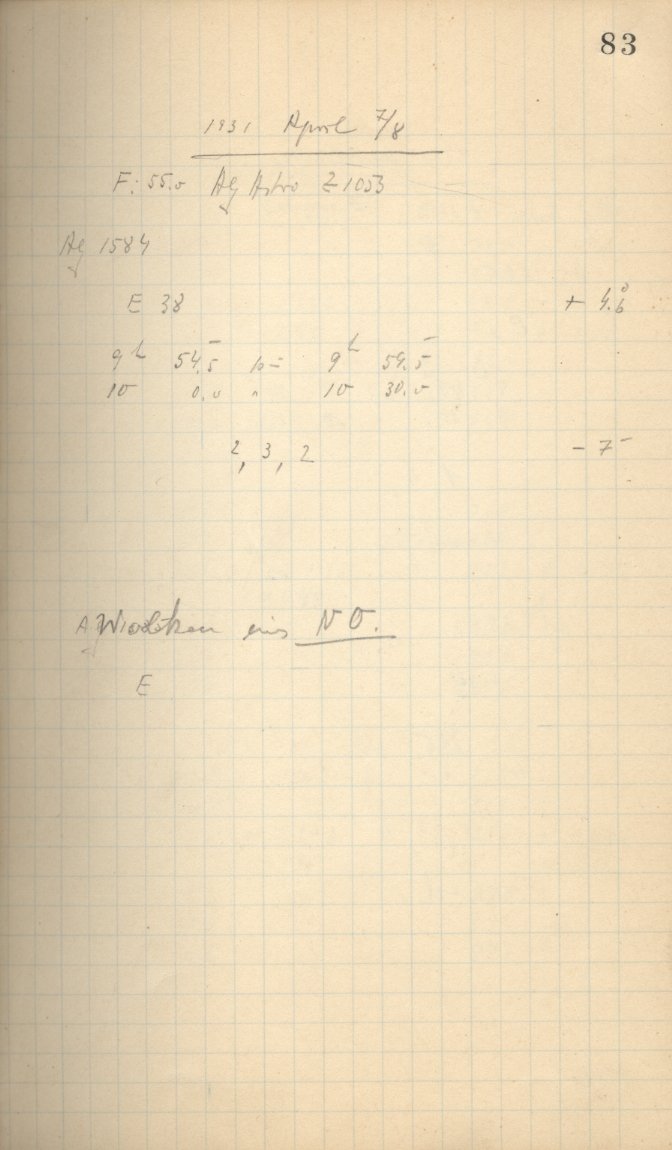 83
1931 April 7/8
F: 55.0 Ag Astro Z 1053
Ag 1584
E 38 + 4.°6
9h 54.5 9h 59.5
10 0.0 " 10 30.0
2, 3, 2 - 7
Wolken NO.
E